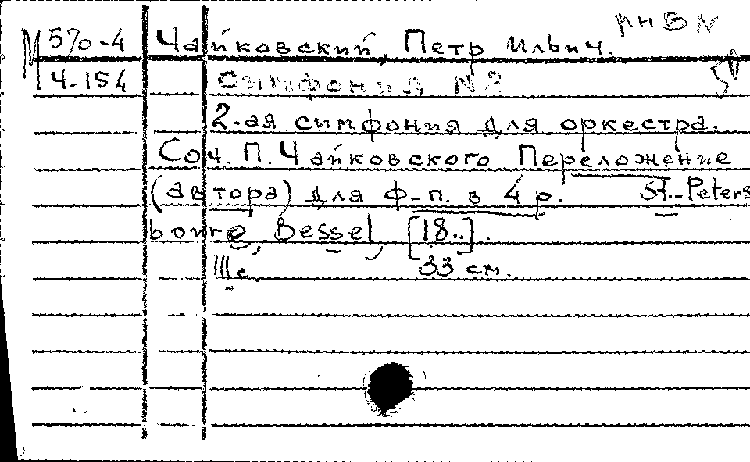 М 570-4 Чайковский, Петр Ильич.
Ч-154 Симфония N 2
2-ая симфония для оркестра.
Соч. П. Чайковского Переложение
(автора) для ф-п. в 4 р. St.-Peters
bourg, Bessel, [18..].
33 см.